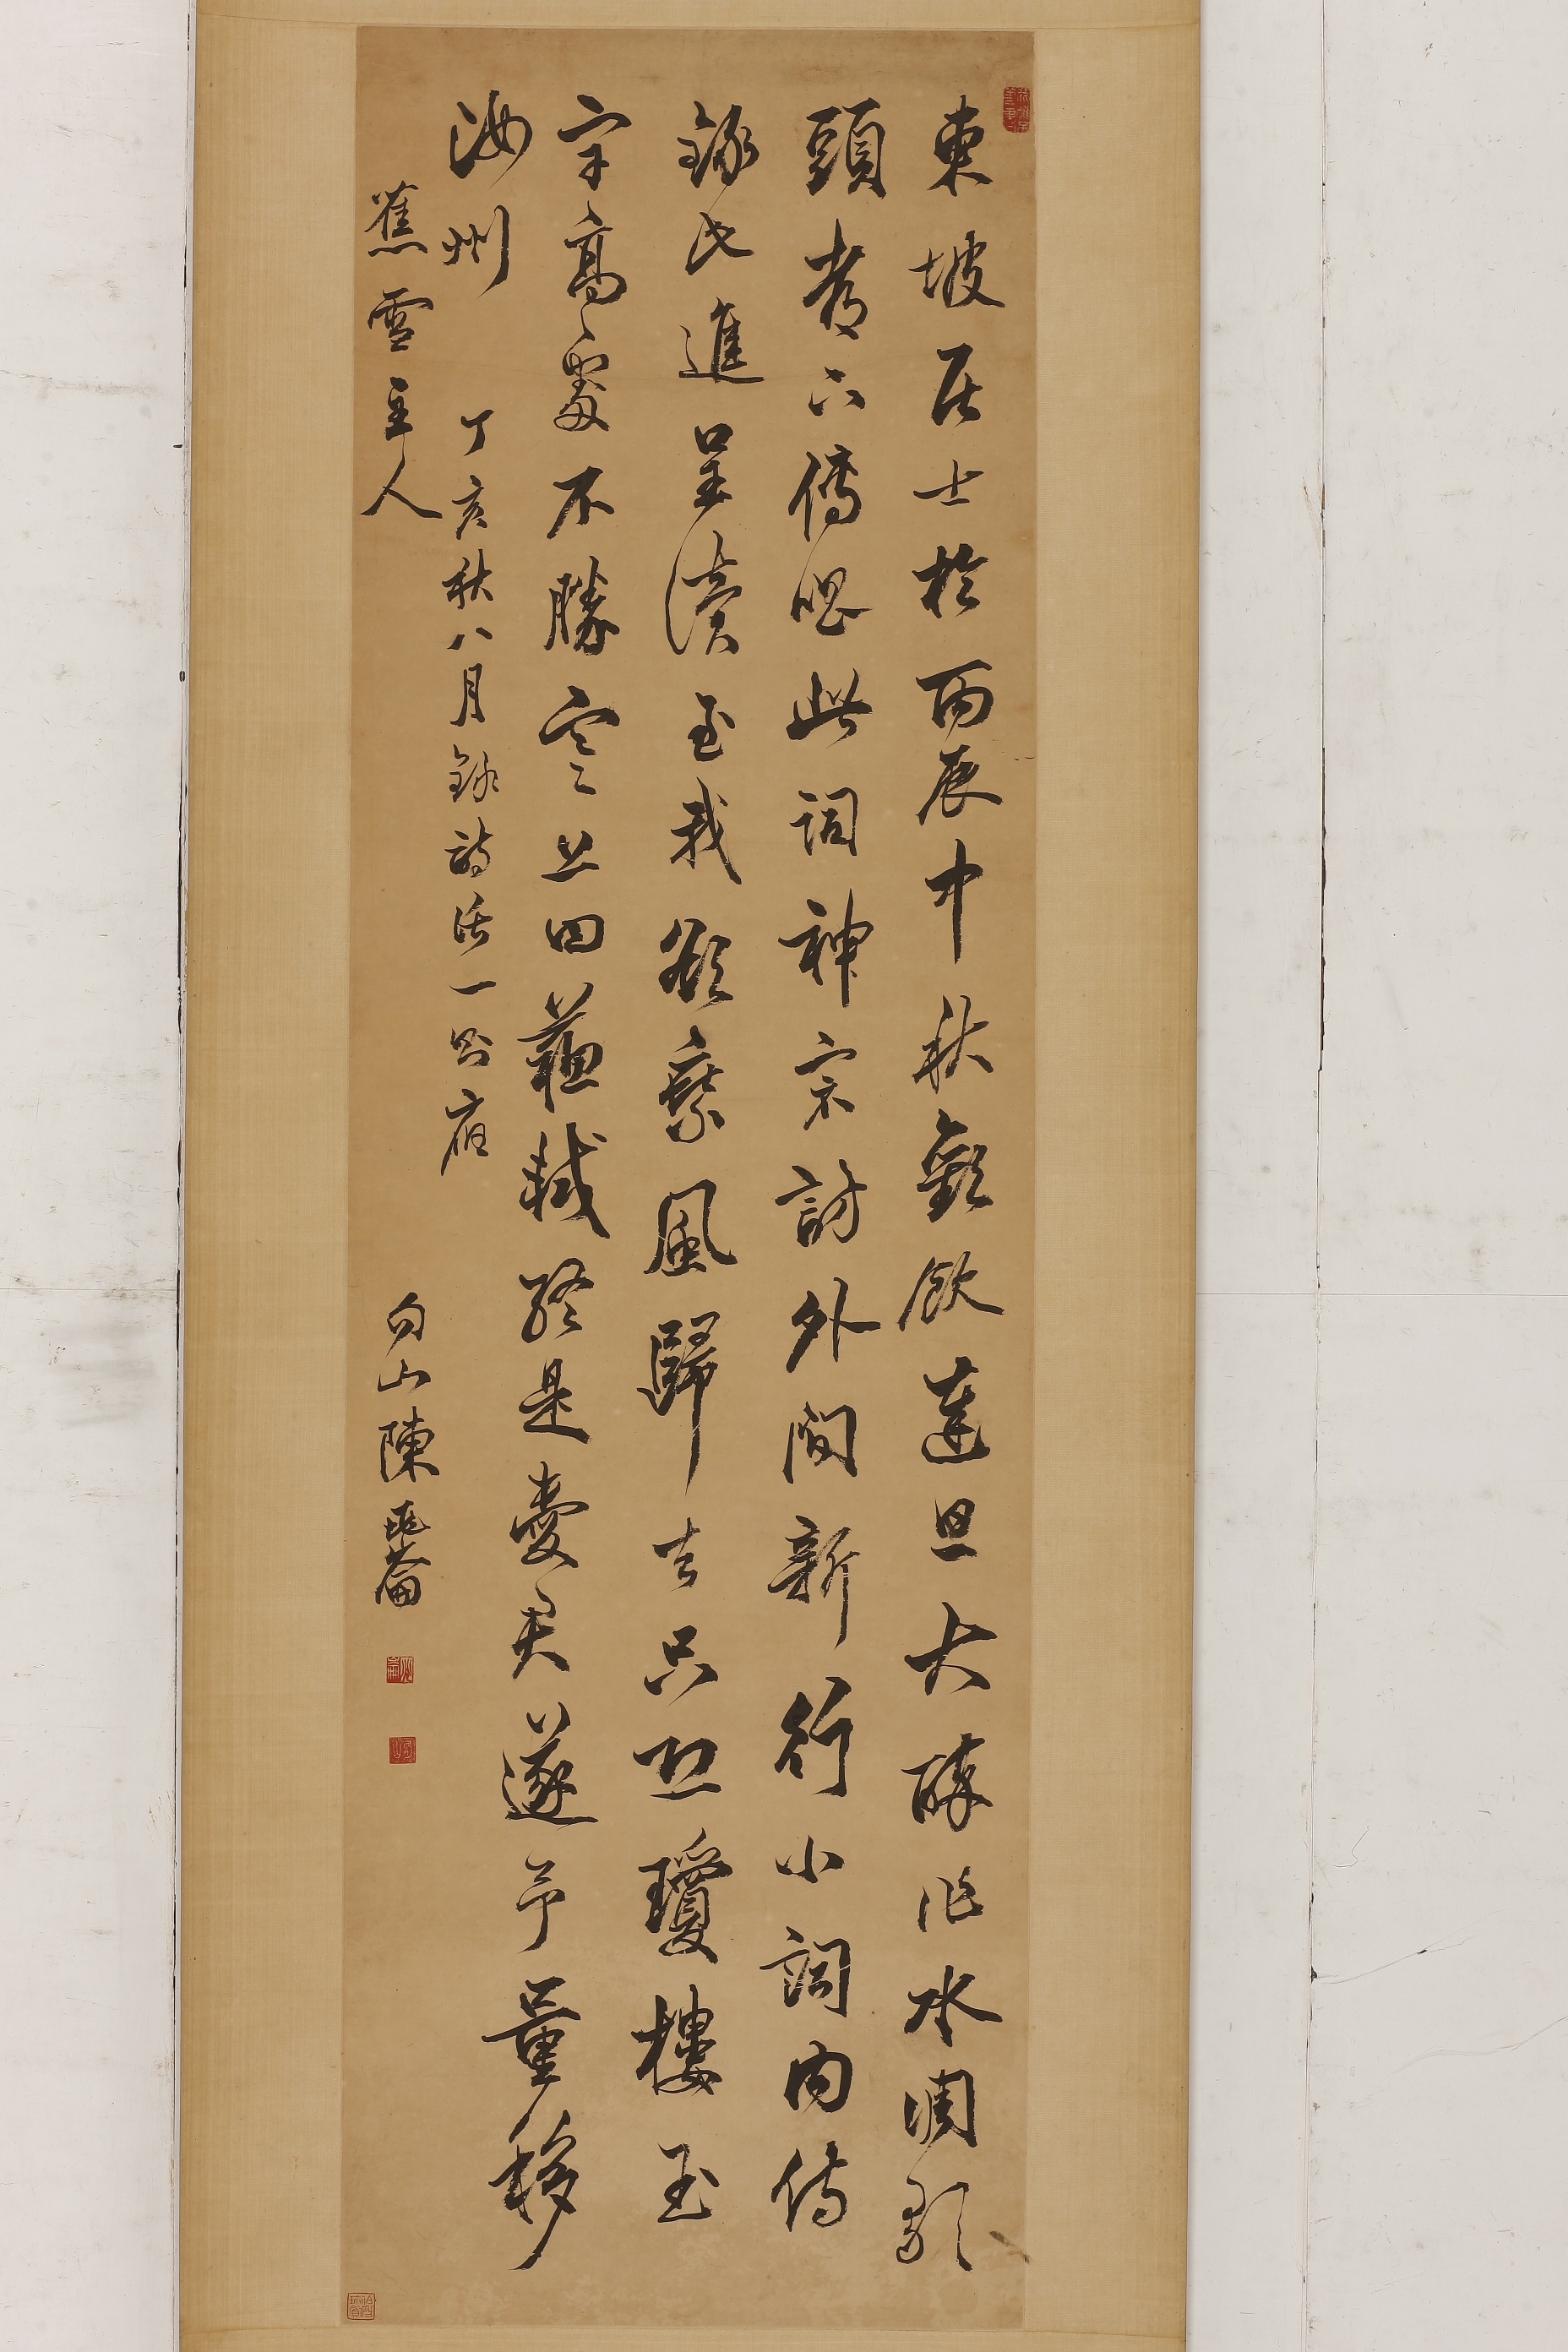 東坡居士於丙辰中秋歡飲達旦大醉作水調歌
頭都下傳唱此詞神宗訪外間新行小詞內侍
錄此進呈讀至我欲乘風歸去只恐瓊樓玉
宇高處不勝寒上曰蘇軾終是愛君遂予量移
汝州 丁亥秋八月錄詩話一則應
蕉雪主人 句山陳兆崙